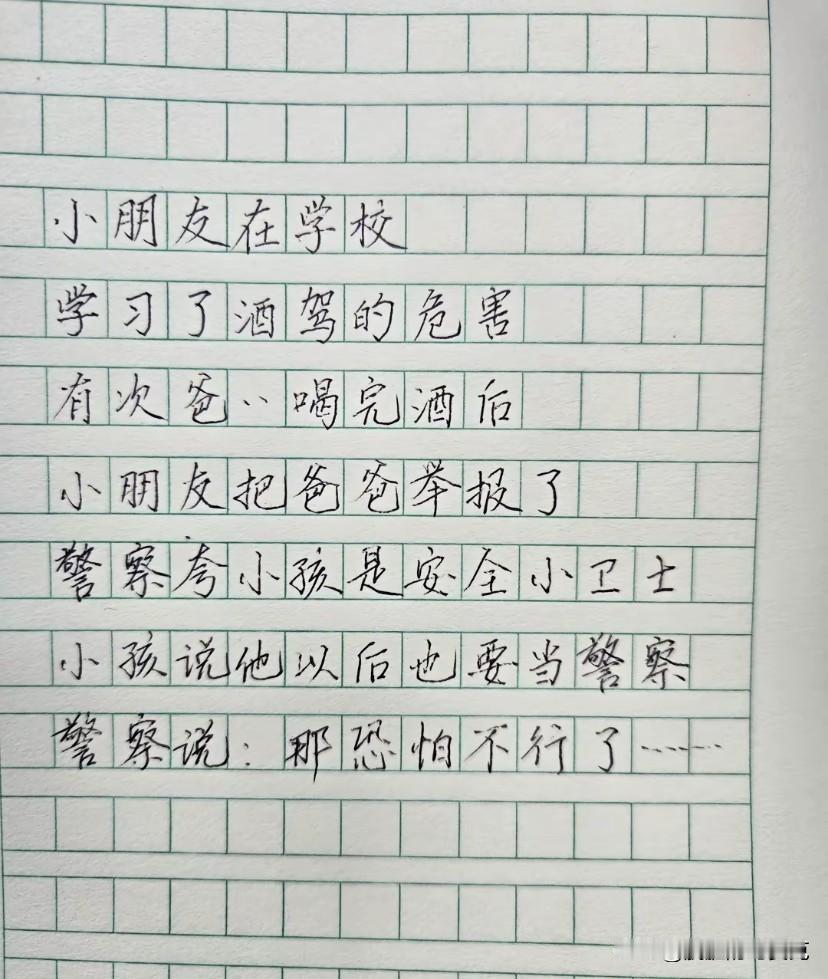 小朋友在学校
学习了酒驾的危害
有次爸··喝完酒后
小朋友把爸爸举报了
警察夸小孩是安全小卫士
小孩说他以后也要当警察
警察说：那恐怕不行了……